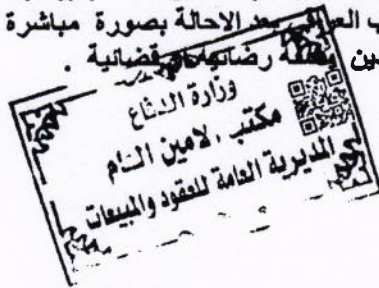 بعد الاحالة بصورة مباشرة
رضائية او قضائية .
وزارة الدفاع
مكتب . لامين الـام
المديرية العامة للعقود والمبيعات